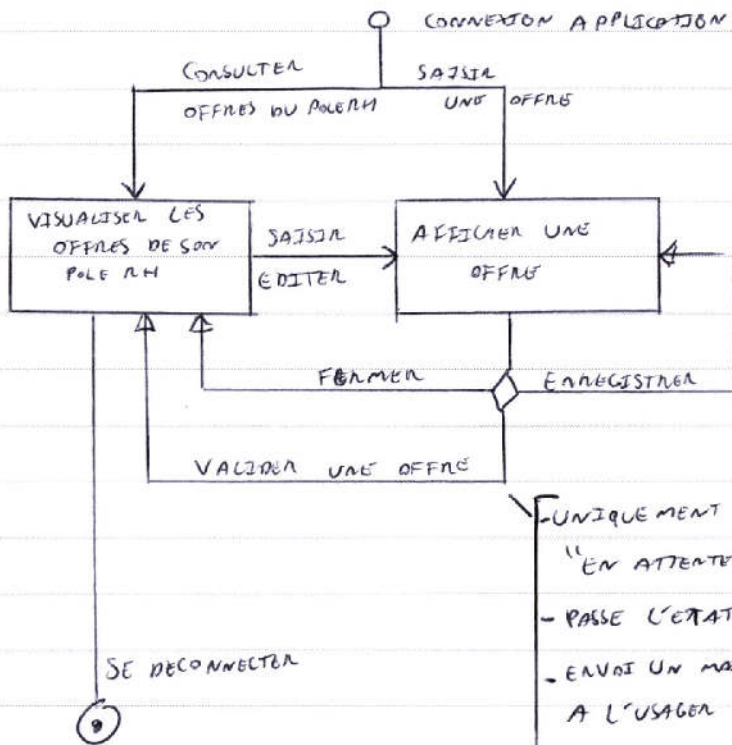 CONNEXION APPLICATION
CONSULTER
OFFRES DU POLE RH
SAISIR
UNE OFFRE
VISUALISER LES
OFFRES DE SON
POLE RH
SAISIR
EDITER
AFFICHER UNE
OFFRE
FERMER
ENREGISTRER
VALIDER UNE OFFRE
- UNIQUEMENT
"EN ATTENTE
- PASSE L'ETAT
- ENVOI UN MA
A L'USAGER
SE DECONNECTER